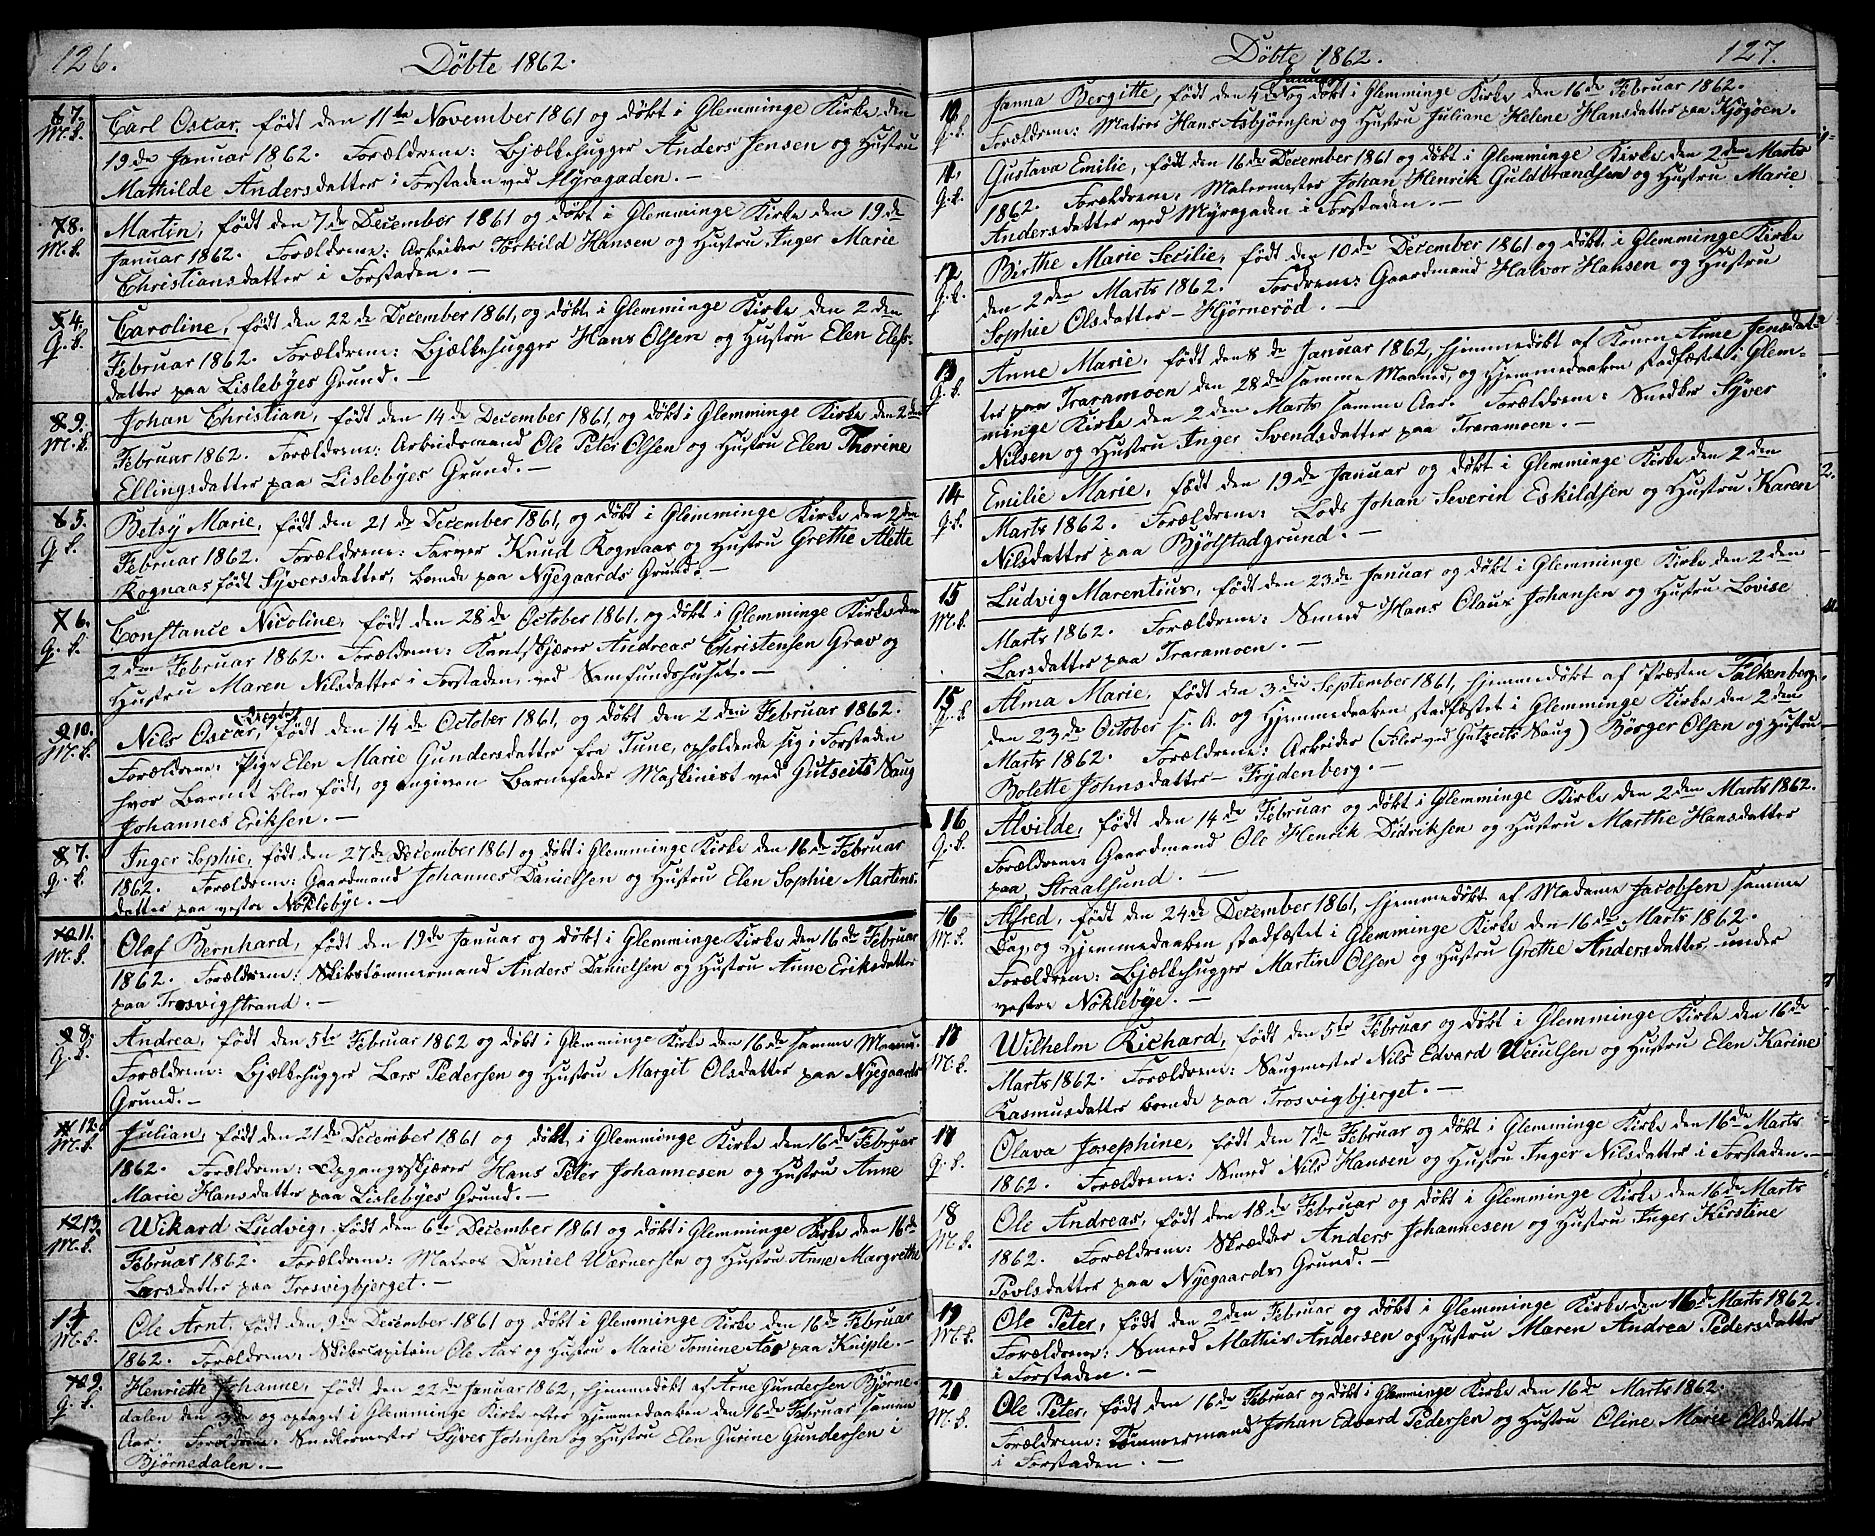 126.
Döbte 1862.
67. Carl Oscar, født den 11te November 1861 og døbt i Glemminge Kirke den
M.k. 19de Januar 1862. Forældrene: Bjælkehugger Anders Jensen og Hustru
Mathilde Andersdatter i Forstaden ved Myragaden. —
78. Martin, født den 7de December 1861 og døbt i Glemminge Kirke den 19de
M.k. Januar 1862. Forældrene: Arbeider Torkild Hansen og Hustru Inger Marie
Christiansdatter i Forstaden. —
54. Caroline, født den 22de December 1861, og døbt i Glemminge Kirke den 2den
Q.k. Februar 1862. Forældrene: Bjælkehugger Hans Olsen og Hustru Elen Elefs-
datter paa Lislebyes Grund. —
89. Johan Christian, født den 14de December 1861, og døbt i Glemminge Kirke den 2den
M.k. Februar 1862. Forældrene: Arbeidsmand Ole Peter Olsen og Hustru Elen Thorine
Ellingsdatter paa Lislebyes Grund. —
65. Betsy Marie, født den 21de December 1861, og døbt i Glemminge Kirke den 2den
Q.k. Februar 1862. Forældrene: Farver Knud Rognaas og Hustru Grethe Alette
Rognaas født Syversdatter, boende paa Nyegaards Grund. —
76. Constance Nicoline, født den 28de October 1861, og døbt i Glemminge Kirke den
Q.k. 2den Februar 1862. Forældrene: Kantskjærer Andreas Christensen Grav og
Hustru Maren Nilsdatter i Forstaden, ved Samfundshuset. —
910. Nils Oscar, født den 14de October 1861, og døbt den 2den Februar 1862.
M.k. Forældrene: Pige Elen Marie Gundersdatter fra Tune, opholdende sig i Forstaden
hvor Barnet blev født, og angiven Barnefader Maskinist ved Gutseits Saug
Johannes Eriksen. —
87. Inger Sophie, født den 27de December 1861 og døbt i Glemminge Kirke den 16de Februar
Q.k. 1862. Forældrene: Gaardmand Johannes Danielsen og Hustru Elen Sophie Martins-
datter paa vestre Nöklebÿe. —
10 11. Olaf Bernhard, født den 19de Januar og døbt i Glemminge Kirke den 16de Februar
M.k. 1862. Forældrene: Skibstømmermand Anders Danielsen og Hustru Anne Eriksdatter
paa Trosvigstrand. —
98. Andrea, født den 5te Februar 1862 og døbt i Glemminge Kirke den 16de samme Maaned.
Q.k. Forældrene: Bjælkehugger Lars Pedersen og Hustru Margit Olsdatter paa Nyegaards
Grund. —
11 12. Julian, født den 21de December 1861 og døbt i Glemminge Kirke den 16de Februar
M.k. 1862. Forældrene: Opgangsskjærer Hans Peter Johannesen og Hustru Anne
Marie Hansdatter paa Lislebyes Grund. —
12 13. Wikard Ludvig, født den 6te December 1861 og døbt i Glemminge Kirke den 16de
M.k. Februar 1862. Forældrene: Matros Daniel Wærnersen og Hustru Anne Margrethe
Larsdatter paa Trosvigbjerget. —
14 Ole Arnt, født den 9de December 1861 og døbt i Glemminge Kirke den 16de Februar
M.k. 1862. Forældrene: Skibscapitain Ole Aas og Hustru Marie Tomine Aas paa Kniple. —
10 9. Henriette Johanne, født den 22de Januar 1862, hjemmedøbt af Arne Gundersen Björne-
Q.k. dalen den 3de og optaget i Glemminge Kirke efter Hjemmedaaben den 16de Februar samme
Aar. Forældrene: Snedkermester Syver Johnsen og Hustru Elen Gurine Gundersen i
Björnedalen. —
127.
Döbte 1862.
Januar
10 Janna Bergitte, født den 4de og døbt i Glemminge Kirke den 16de Februar 1862.
Q.k. Forældrene: Matros Hans Asbjørnsen og Hustru Juliane Helene Hansdatter paa Kjøgöen.
11. Gustava Emilie, født den 16de December 1861 og døbt i Glemminge Kirke den 2den Marts
Q.k. 1862. Forældrene: Malermester Johan Henrik Guldbrandsen og Hustru Marie
Andersdatter ved Myragaden i Forstaden. —
12. Birthe Marie Secilie, født den 10de December 1861, og døbt i Glemminge Kirke
Q.k. den 2den Marts 1862. Fordrene: Gaardmand Halvor Hansen og Hustru
Sophie Olsdatter — Hjørneröd. —
13 Anne Marie, født den 8de Januar 1862, hjemmedøbt af Konen Anne Jensdat-
Q.k. ter paa Traramoen den 28de samme Maaned, og Hjemmedaaben stadfæstet i Glem-
minge Kirke den 2den Marts samme Aar. Forældrene: Snedker Syver
Nilsen og Hustru Inger Svendsdatter paa Traramoen. —
14 Emilie Marie, født den 19de Januar og døbt i Glemminge Kirke den 2den
Q.k. Marts 1862. Forældrene: Lods Johan Severin Eskildsen og Hustru Karen
Nilsdatter paa Bjölstadgrund. —
15 Ludvig Marentius, født den 23de Januar og døbt i Glemminge Kirke den 2den
M.k. Marts 1862. Forældrene: Smed Hans Olaus Johansen og Hustru Lovise
Larsdatter paa Traramoen. —
15 Alma Marie, født den 3die September 1861, hjemmedøbt af Præsten Falkenberg
Q.k. den 23de October s. A. og Hjemmedaaben stadfæstet i Glemminge Kirke den 2den
Marts 1862. Forældrene: Arbeider (Filer ved Gutzeits Saug) Börger Olsen og Hustru
Bolette Johnsdatter — Frydenberg. —
16 Alvilde, født den 14de Februar og døbt i Glemminge Kirke den 2den Marts 1862.
Q.k. Forældrene: Gaardmand Ole Henrik Didriksen og Hustru Marthe Hansdatter
paa Straalsund. —
16 Alfred, født den 24de December 1861, hjemmedøbt af Madame Jacobsen samme
M.k. Dag og Hjemmedaaben stadfæstet i Glemminge Kirke den 16de Marts 1862.
Forældrene: Bjælkehugger Martin Olsen og Hustru Grethe Andersdatter under
vestre Nöklebÿe. —
17 Wilhelm Richard, født den 5te Februar og døbt i Glemminge Kirke den 16de
M.k. Marts 1862. Forældrene: Saugmester Nils Edvard Weiulsen og Hustru Elen Karine
Rasmusdatter boende paa Trosvigbjerget. —
17 Olava Josephine, født den 7de Februar og døbt i Glemminge Kirke den 16de Marts
Q.k. 1862. Forældrene: Smed Nils Hansen og Hustru Inger Nilsdatter i Forstaden. —
18 Ole Andreas, født den 18de Februar og døbt i Glemminge Kirke den 16de Marts
M.k. 1862. Forældrene: Skrædder Anders Johannesen og Hustru Inger Kirstine
Povlsdatter paa Nyegaards Grund. —
19 Ole Peter, født den 2den Februar og døbt i Glemminge Kirke den 16de Marts 1862.
M.k. Forældrene: Smed Mathis Andersen og Hustru Maren Andrea Pedersdatter
i Forstaden. —
20 Ole Peter, født den 16de Februar og døbt i Glemminge Kirke den 16de Marts 1862.
M.k. Forældrene: Tømmermand Johan Edvard Pedersen og Hustru Oline Marie Olsdatter
i Forstaden. —